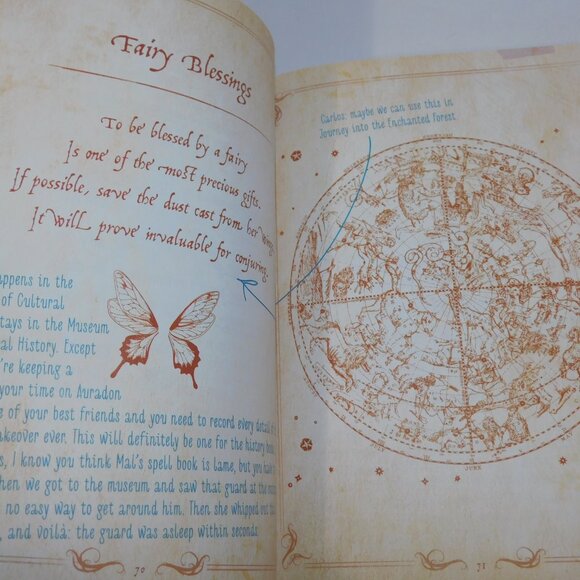 Fairy Blessings
To be blessed by a fairy
Is one of the most precious gifts.
If possible, save the dust cast from her wings.
It will prove invaluable for conjuring.
appens in the
of Cultural
tays in the Museum
al History. Except
're keeping a
your time on Auradon
e of your best friends and you need to record every detail of
akeover ever. This will definitely be one for the history
s, I know you think Mal's spell book is lame, but you
hen we got to the museum and saw that guard at the
no easy way to get around him. Then she whipped out
, and voilà: the guard was asleep within seconds.
70
Carlos: maybe we can use this in
Journey into the Enchanted Forest.
JUNE
71